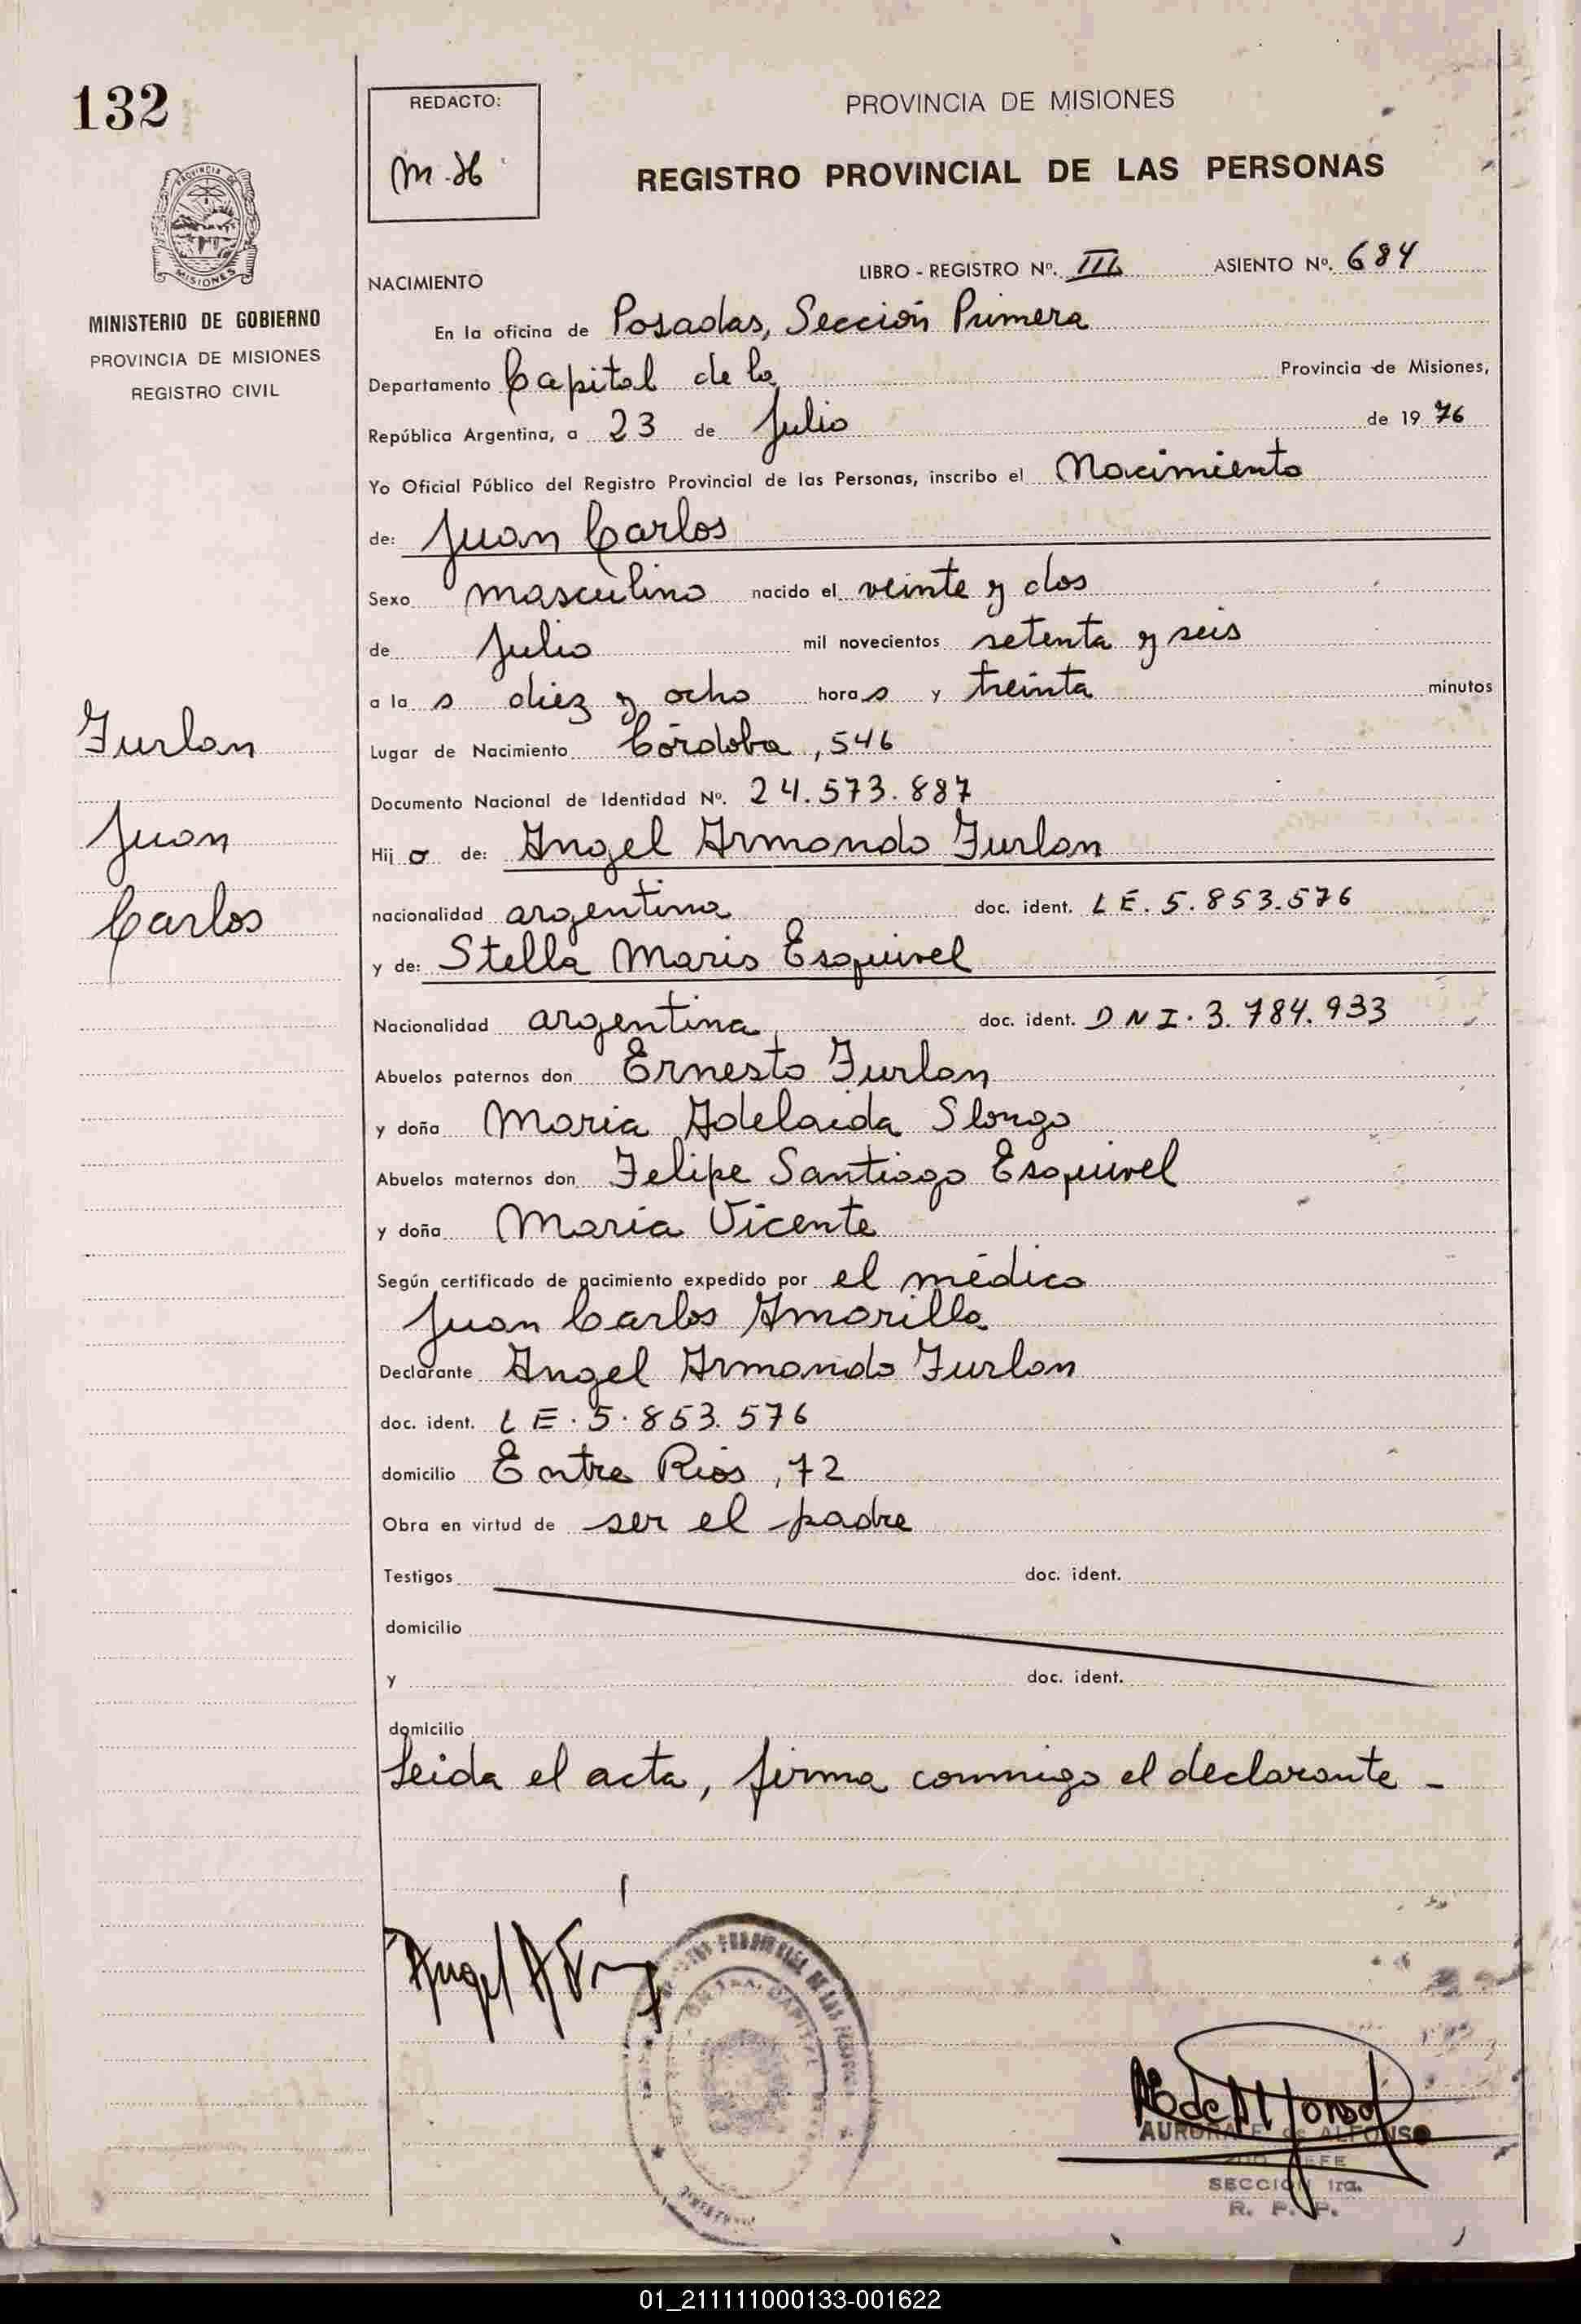 132
REDACTO:
M.H
PROVINCIA DE MISIONES
REGISTRO PROVINCIAL DE LAS PERSONAS
PROVINCIA DE
MISIONES
MINISTERIO DE GOBIERNO
PROVINCIA DE MISIONES
REGISTRO CIVIL
NACIMIENTO
LIBRO - REGISTRO Nº. III ASIENTO Nº. 684
En la oficina de Posadas, Sección Primera
Departamento Capital de la Provincia de Misiones,
República Argentina, a 23 de Julio de 1976
Yo Oficial Público del Registro Provincial de las Personas, inscribo el Nacimiento
de: Juan Carlos
Sexo masculino nacido el veinte y dos
de Julio mil novecientos setenta y seis
a la s diez y ocho hora s y treinta minutos
Lugar de Nacimiento Córdoba, 546
Documento Nacional de Identidad Nº. 24.573.887
Hij o de: Angel Armando Furlan
nacionalidad argentina doc. ident. LE. 5.853.576
y de: Stella Maris Esquivel
Nacionalidad argentina doc. ident. DNI. 3.784.933
Abuelos paternos don Ernesto Furlan
y doña Maria Adelaida Slongo
Abuelos maternos don Felipe Santiago Esquivel
y doña Maria Vicente
Según certificado de nacimiento expedido por el médico
Juan Carlos Amarilla
Declarante Angel Armando Furlan
doc. ident. LE. 5.853.576
domicilio Entre Rios, 72
Obra en virtud de ser el padre
Testigos doc. ident.
domicilio
y doc. ident.
domicilio
Leida el acta, firma conmigo el declarante -
Furlan
Juan
Carlos
Angel A
CAPITAL
AURORA E. de ALFONSO
JEFE
SECCION 1ra.
R. P. P.
01_211111000133-001622